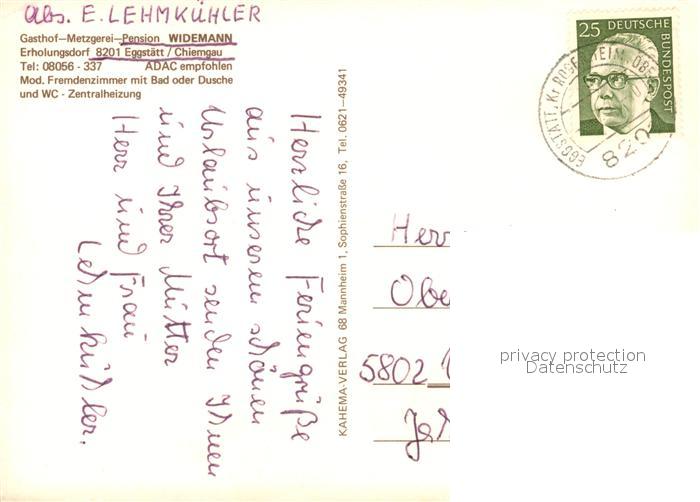 Abs. E. LEHMKÜHLER
Gasthof–Metzgerei–Pension WIDEMANN
Erholungsdorf 8201 Eggstätt / Chiemgau
Tel: 08056 - 337 ADAC empfohlen
Mod. Fremdenzimmer mit Bad oder Dusche
und WC - Zentralheizung
Herzliche Feriengrüße
aus unserem schönen
Urlaubsort senden Ihnen
und Ihrer Mutter
Herr und Frau
Lehmkühler.
KAHEMA-VERLAG 68 Mannheim 1, Sophienstraße 16, Tel. 0621–49341
25 DEUTSCHE
BUNDESPOST
EGGSTÄTT, Kr ROSENHEIM, OBB
820
Herr
Obe
5802
privacy protection
Datenschutz